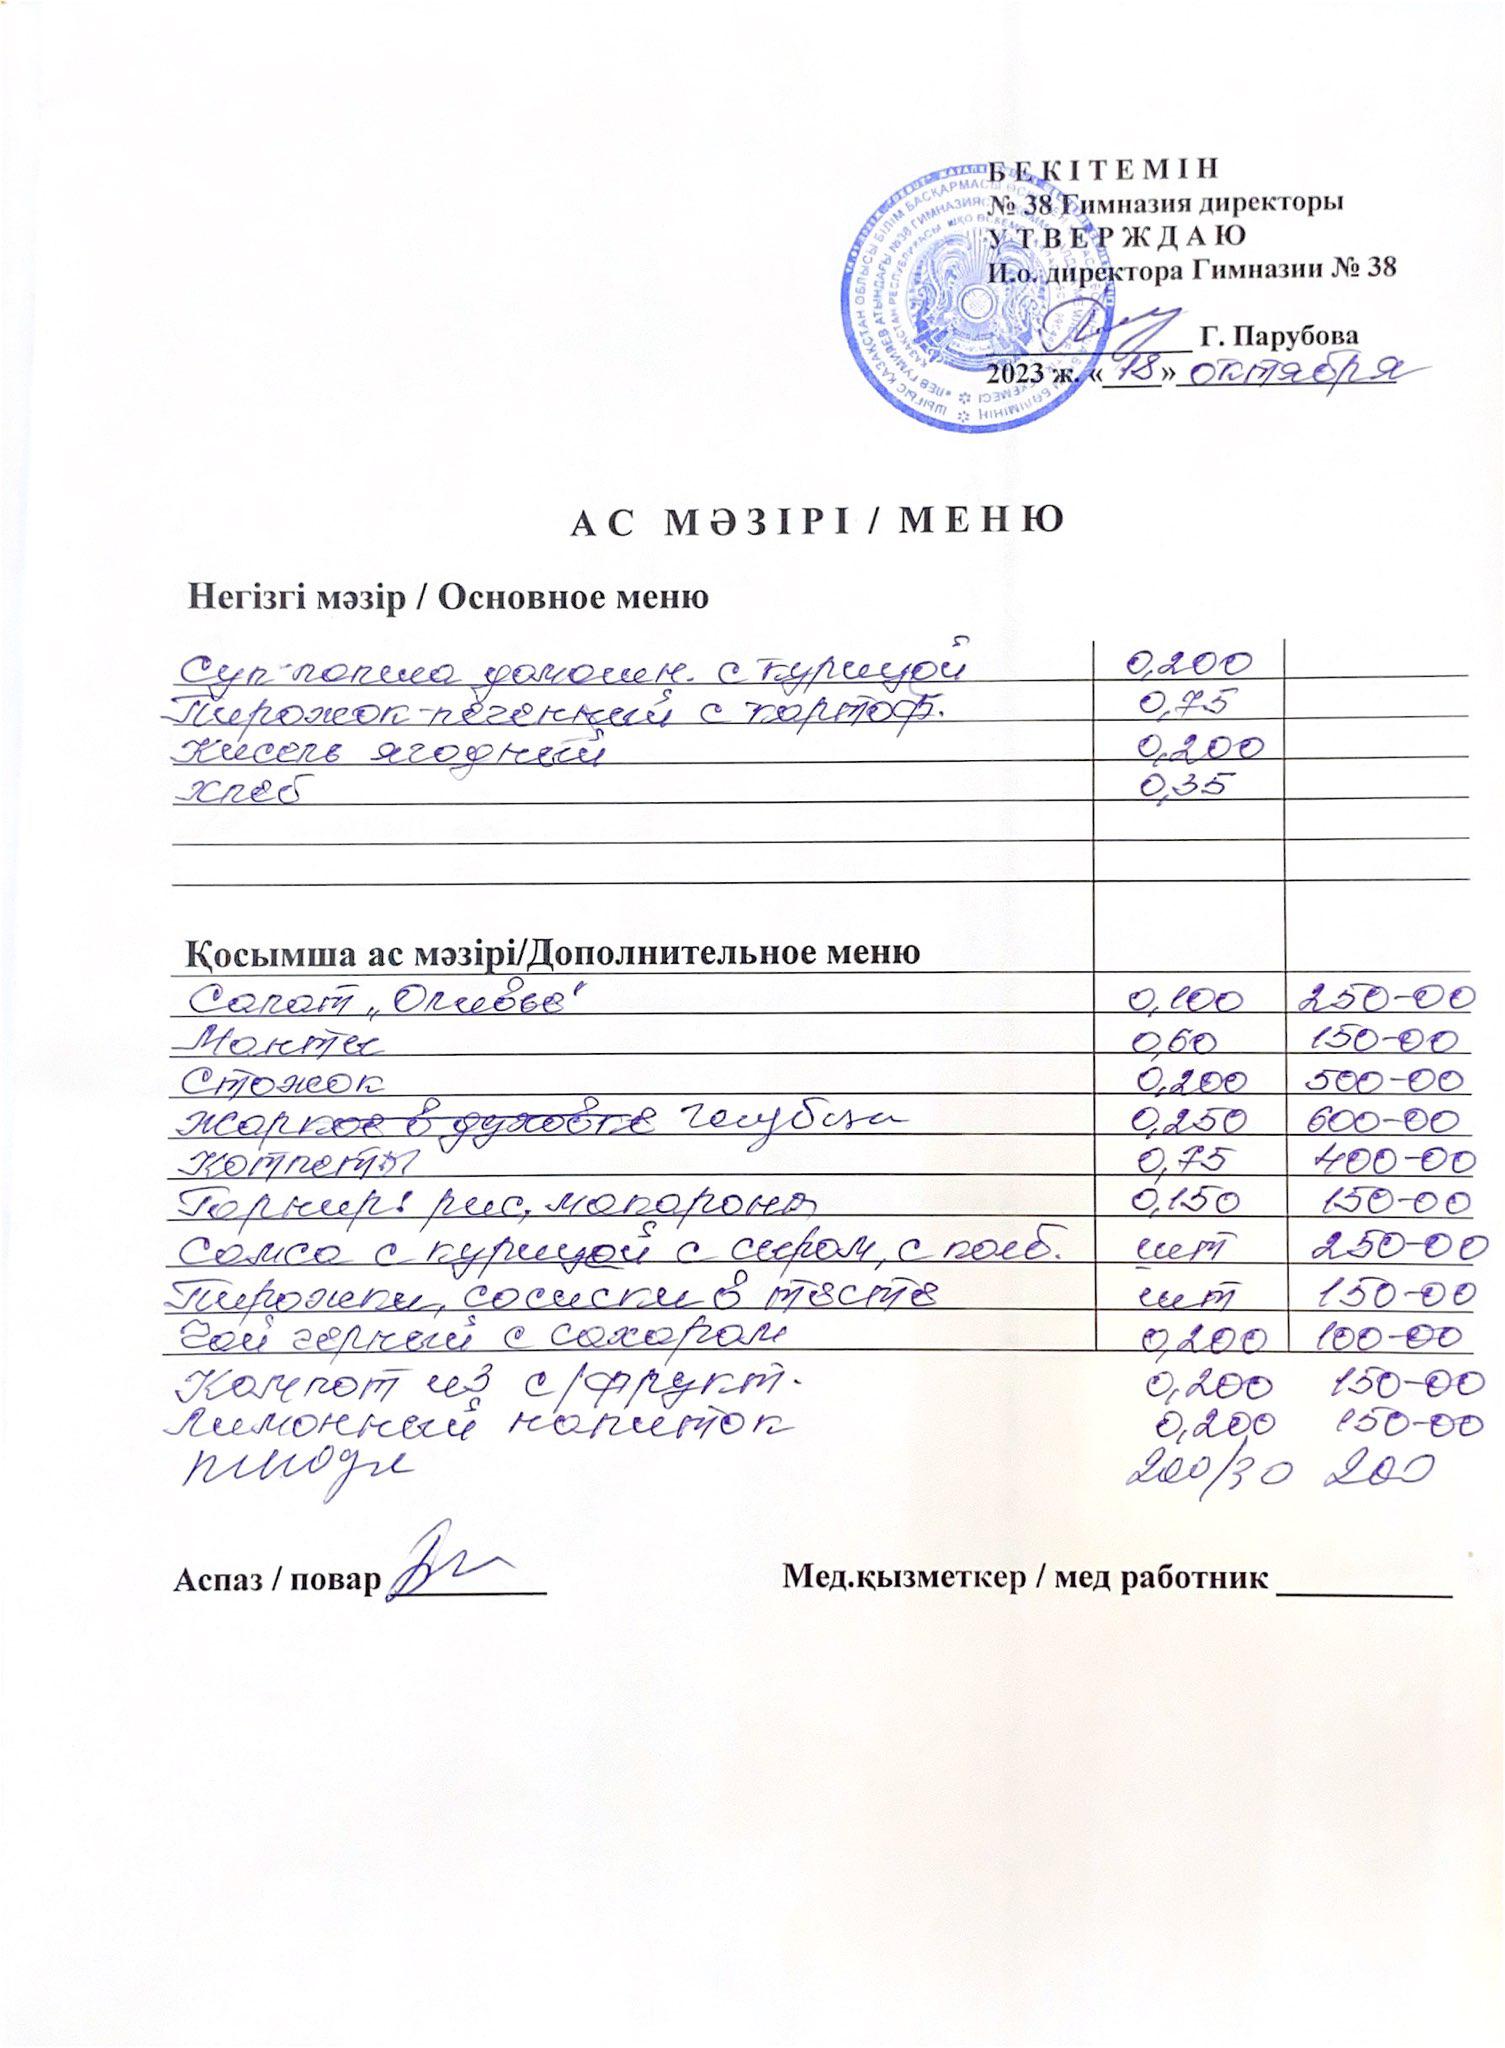 Б Е К І Т Е М І Н
№ 38 Гимназия директоры
У Т В Е Р Ж Д А Ю
И.о. директора Гимназии № 38
Г. Парубова
2023 ж. «18» октября
А С М Ә З І Р І / М Е Н Ю
Негізгі мәзір / Основное меню
Суп-лапша домашн. с курицой 0,200
Пирожок печенный с картоф. 0,75
Кисель ягодный 0,200
хлеб 0,35
Қосымша ас мәзірі/Дополнительное меню
Салат „Оливье" 0,100 250-00
Манты 0,60 150-00
Стожок 0,200 500-00
жаркое в духовке голубцы 0,250 600-00
Котлеты 0,75 400-00
Гарнир: рис, макароны 0,150 150-00
Самса с курицой с сыром, с колб. шт 250-00
Пирожки, сосиски в тесте шт 150-00
Чай черный с сахаром 0,200 100-00
Компот из с/фрукт. 0,200 150-00
Лимонный напиток 0,200 150-00
200/30 200
Аспаз / повар
Мед.қызметкер / мед работник